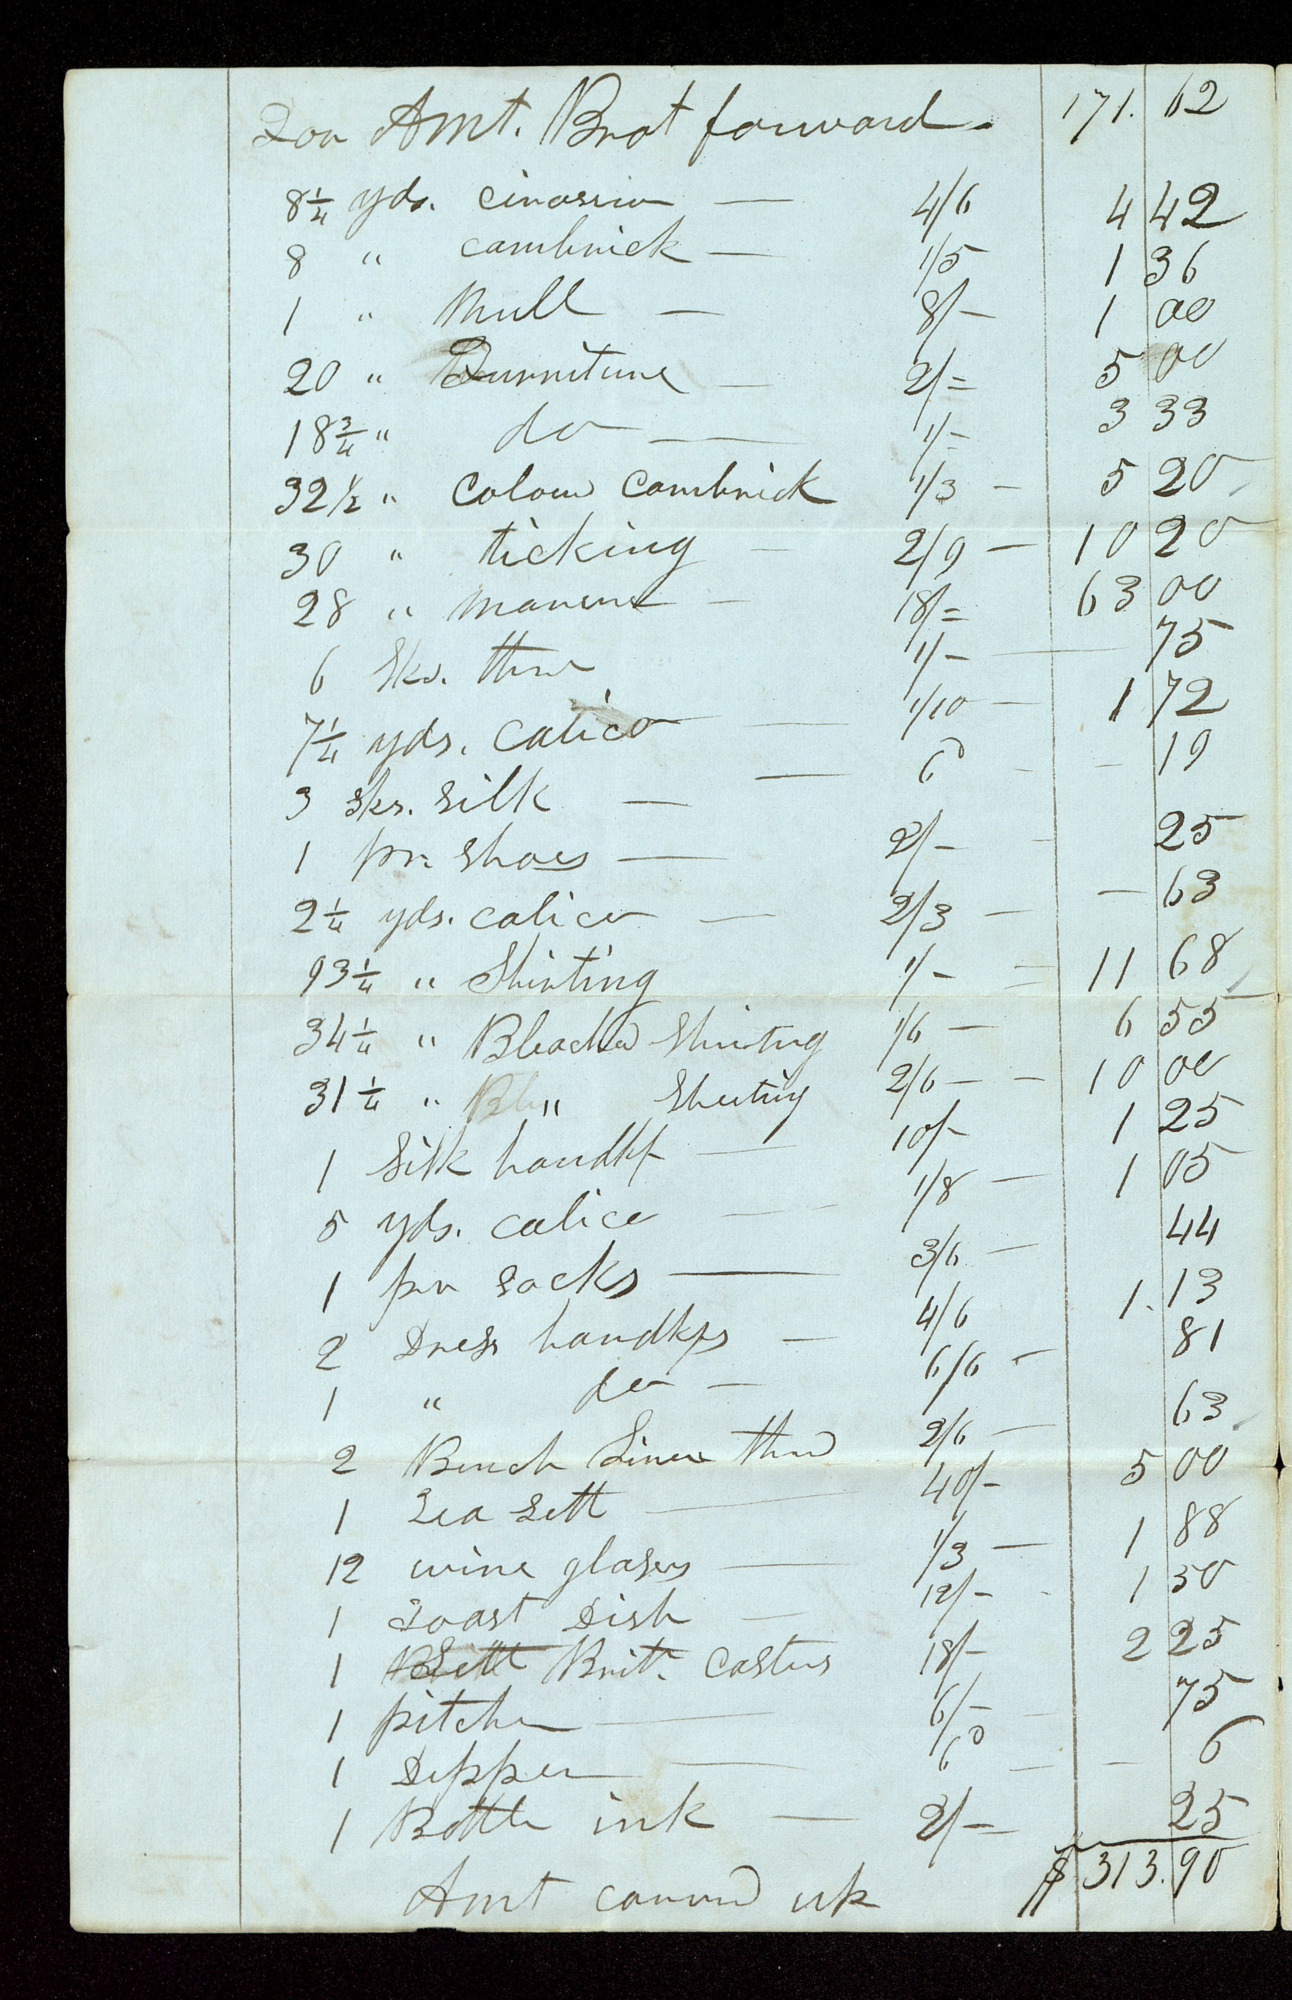 Too Amt. Brot forward - 171. 62
8 1/4 yds. — 4/6 4 42
8 " cambrick — 1/5 1 36
1 " Mull — 8/- 1 00
20 " Furniture — 2/= 5 00
18 3/4 " do — 1/= 3 33
32 1/2 " Colour Cambrick 1/3 - 5 20
30 " ticking - 2/9 - 10 20
28 " - 18/= 63 00
6 Sks. thre 1/- — 75
7 1/4 yds. calico — 1/10 - 1 72
3 sks. silk — 6d - - 19
1 pr. shoes — 2/- - 25
2 1/4 yds. calico — 2/3 - - 63
93 1/4 " Shirting 1/- = 11 68
34 1/4 " Bleached Shirting 1/6 - 6 55
31 1/4 " " Sheeting 2/6 - - 10 00
1 silk handkf — 10/- 1 25
5 yds. calico — 1/8 - 1 05
1 pr socks — 3/6 - 44
2 Dress handkfs — 4/6 1. 13
1 " do — 6/6 - 81
2 Bunch Linen thrd 2/6 - 63
1 Tea Sett — 40/- 5 00
12 wine glases — 1/3 - 1 88
1 Toast Dish — 12/- - 1 50
1 Brit. casters 18/- 2 25
1 pitcher — 6/- - 75
1 Dipper — 6d - - 6
1 Bottle ink — 2/- 25
Amt $313.90